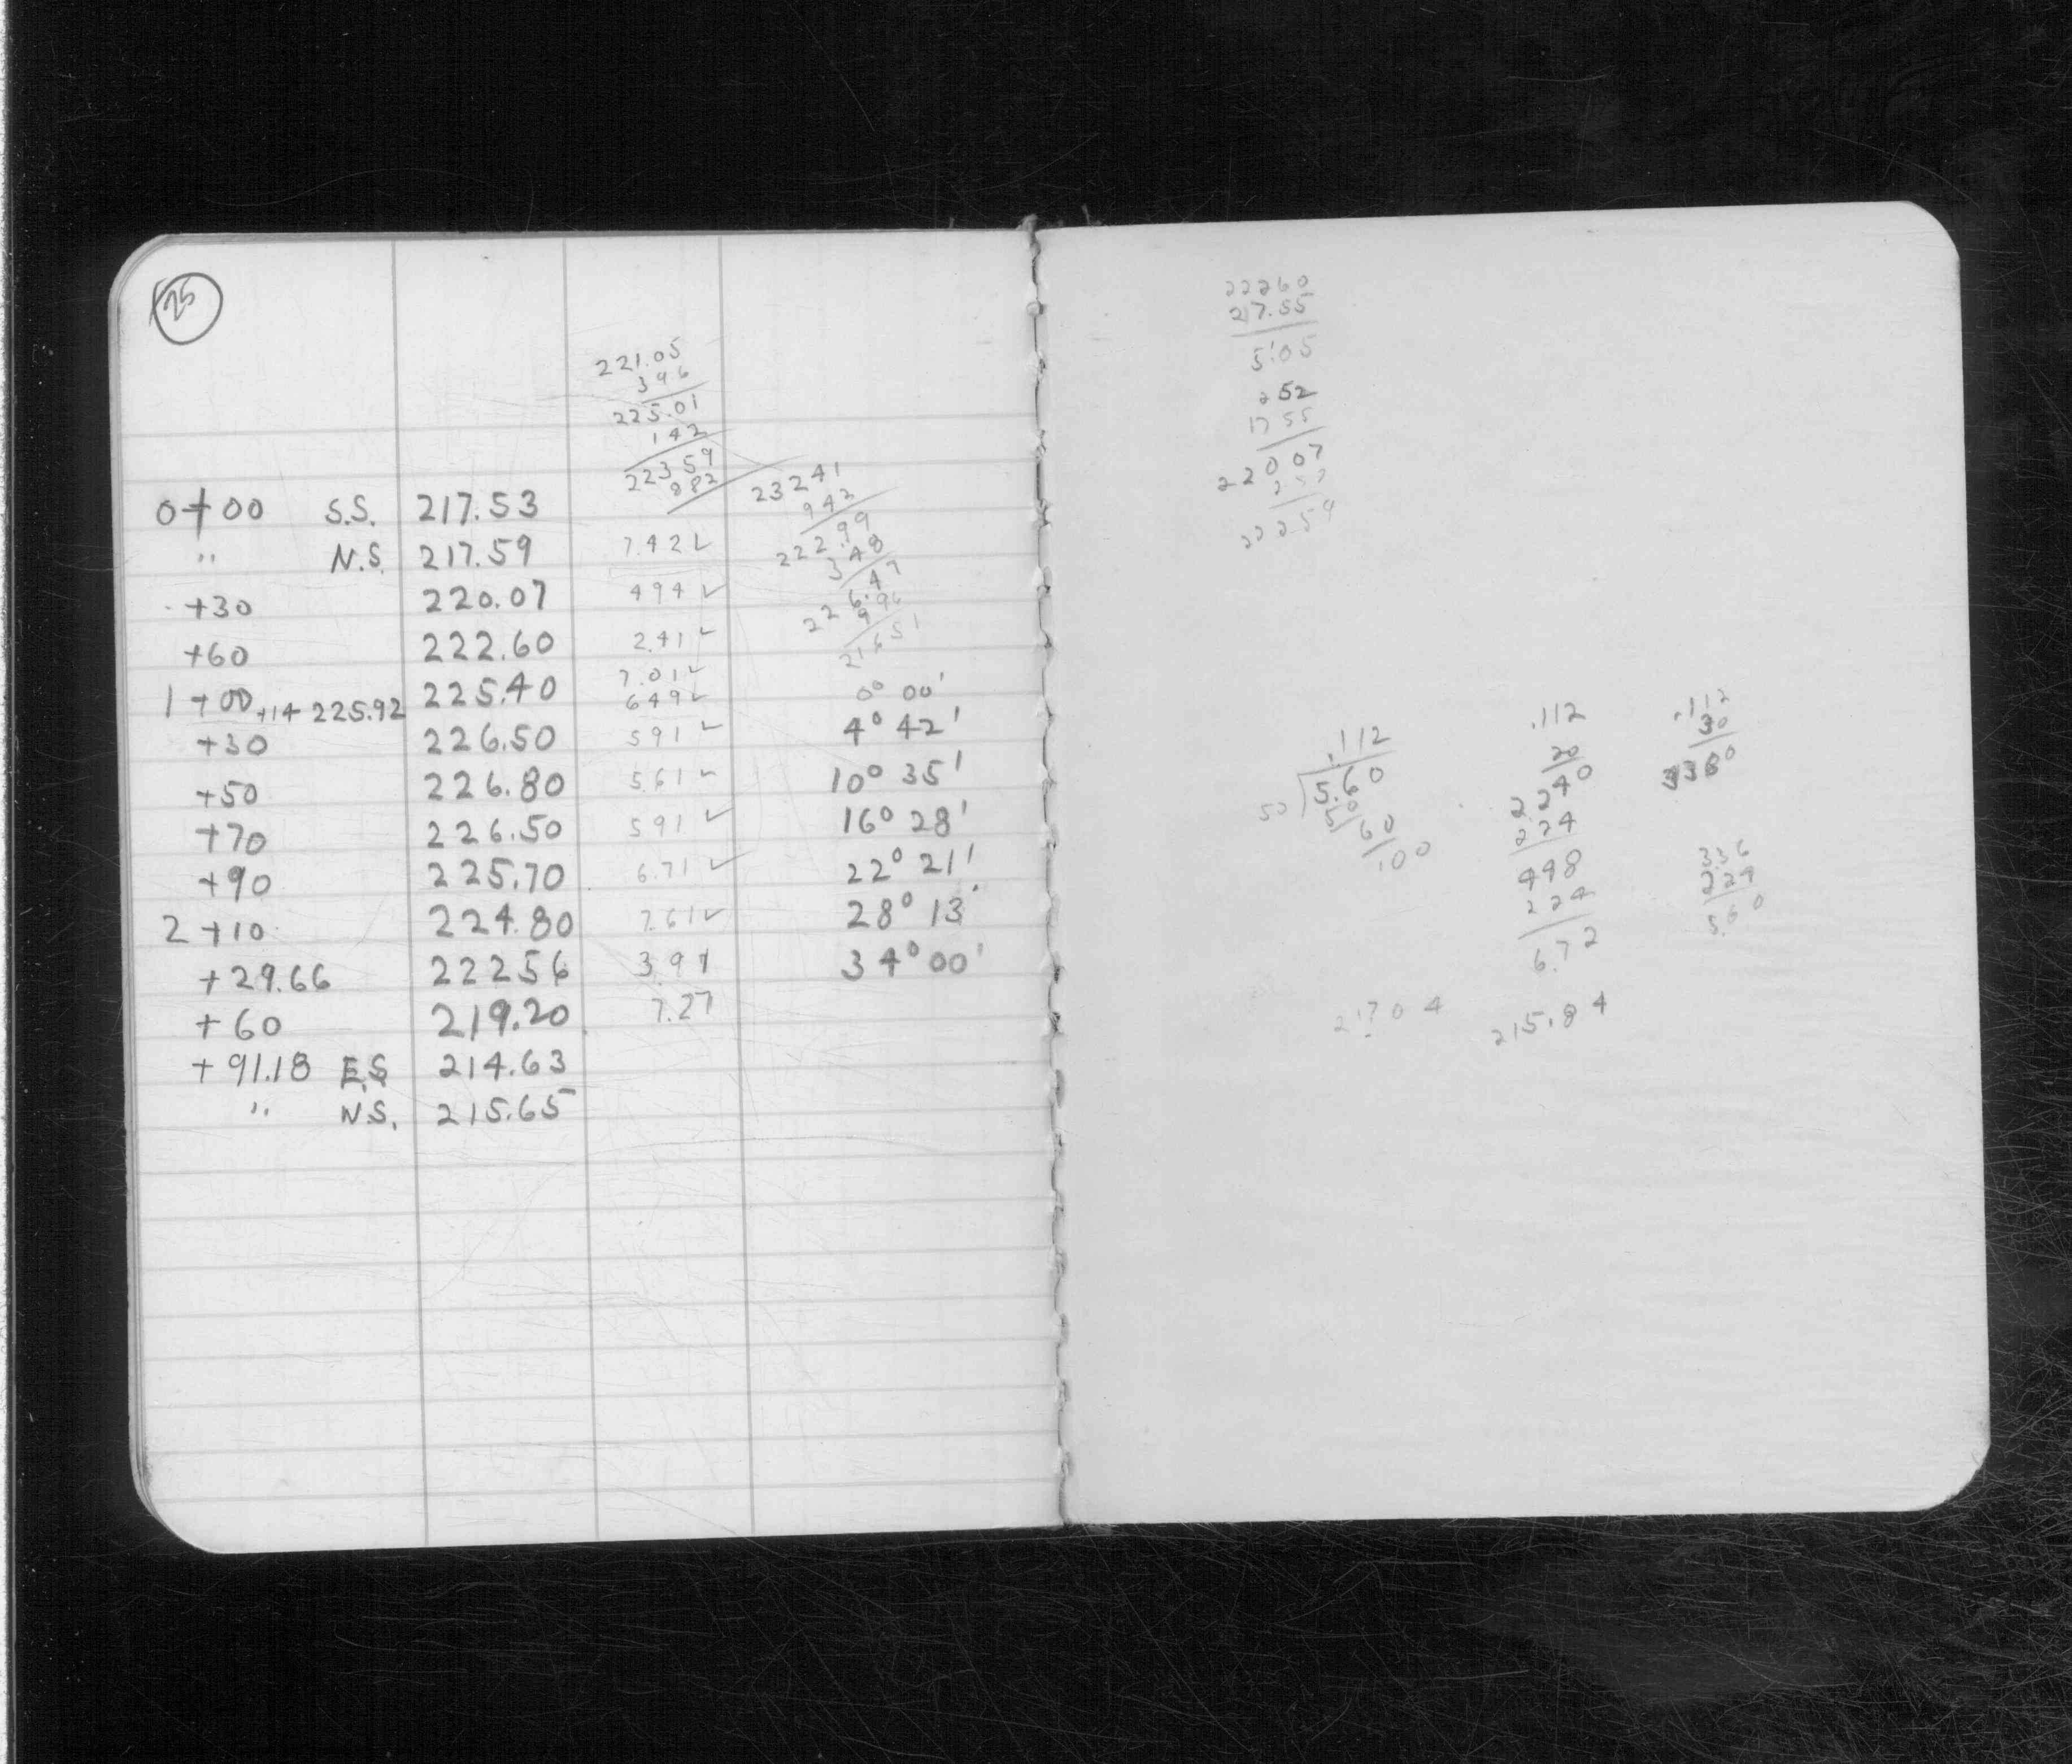 25
221.05
3 96
225.01
1 42
223 59
8 82
232 41
9 42
222.99
3 48
226.47
9 96
216 51
0+00 S.S. 217.53
" N.S. 217.59 7.42 ✓
+30 220.07 4 94 ✓
+60 222.60 2.41 ✓
7.01 ✓
1+00 +14 225.92 225.40 6 49 ✓ 0° 00'
+30 226.50 5 91 ✓ 4° 42'
+50 226.80 5.61 ✓ 10° 35'
+70 226.50 5 91 ✓ 16° 28'
+90 225.70 6.71 ✓ 22° 21'
2+10 224.80 7.61 ✓ 28° 13'
+29.66 222 56 3.91 34° 00'
+60 219.20 7.27
+91.18 E.S. 214.63
" N.S. 215.65
222 60
217.55
5.05
2 52
17 55
220 07
2 52
222 59
.112
50 ) 5.60
5 0
60
100
.112
20
2 240
224
448
224
6.72
.112
30
3360
336
224
5.60
217 04
215.84